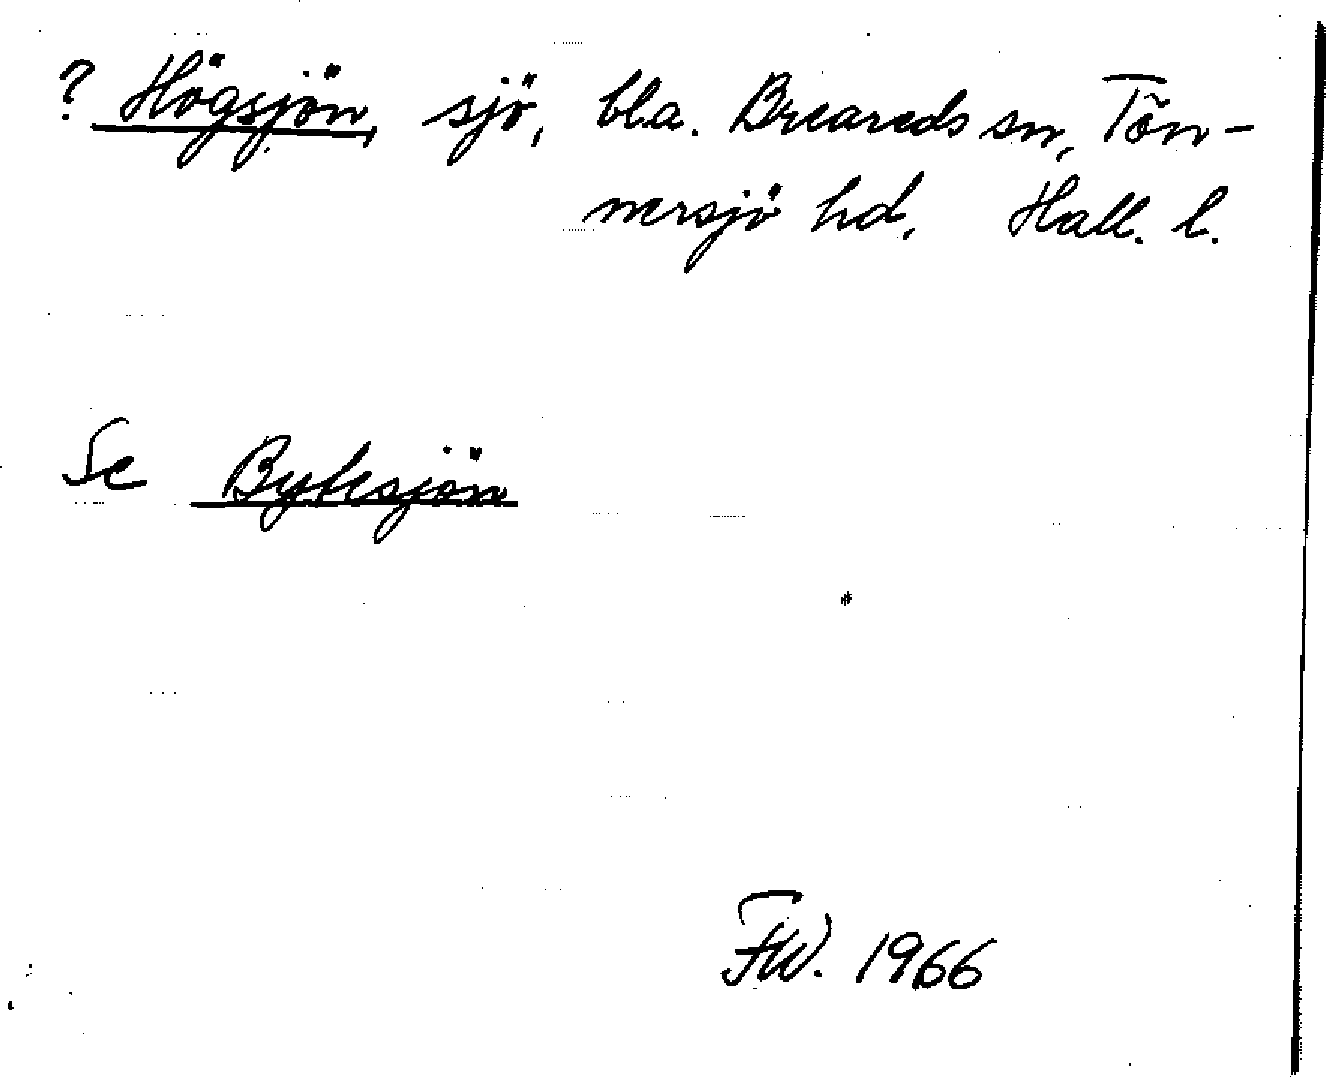 ? Högsjön, sjö, bl.a. Breareds sn, Tön-
nersjö hd, Hall. l.
Se Bytesjön
FW. 1966